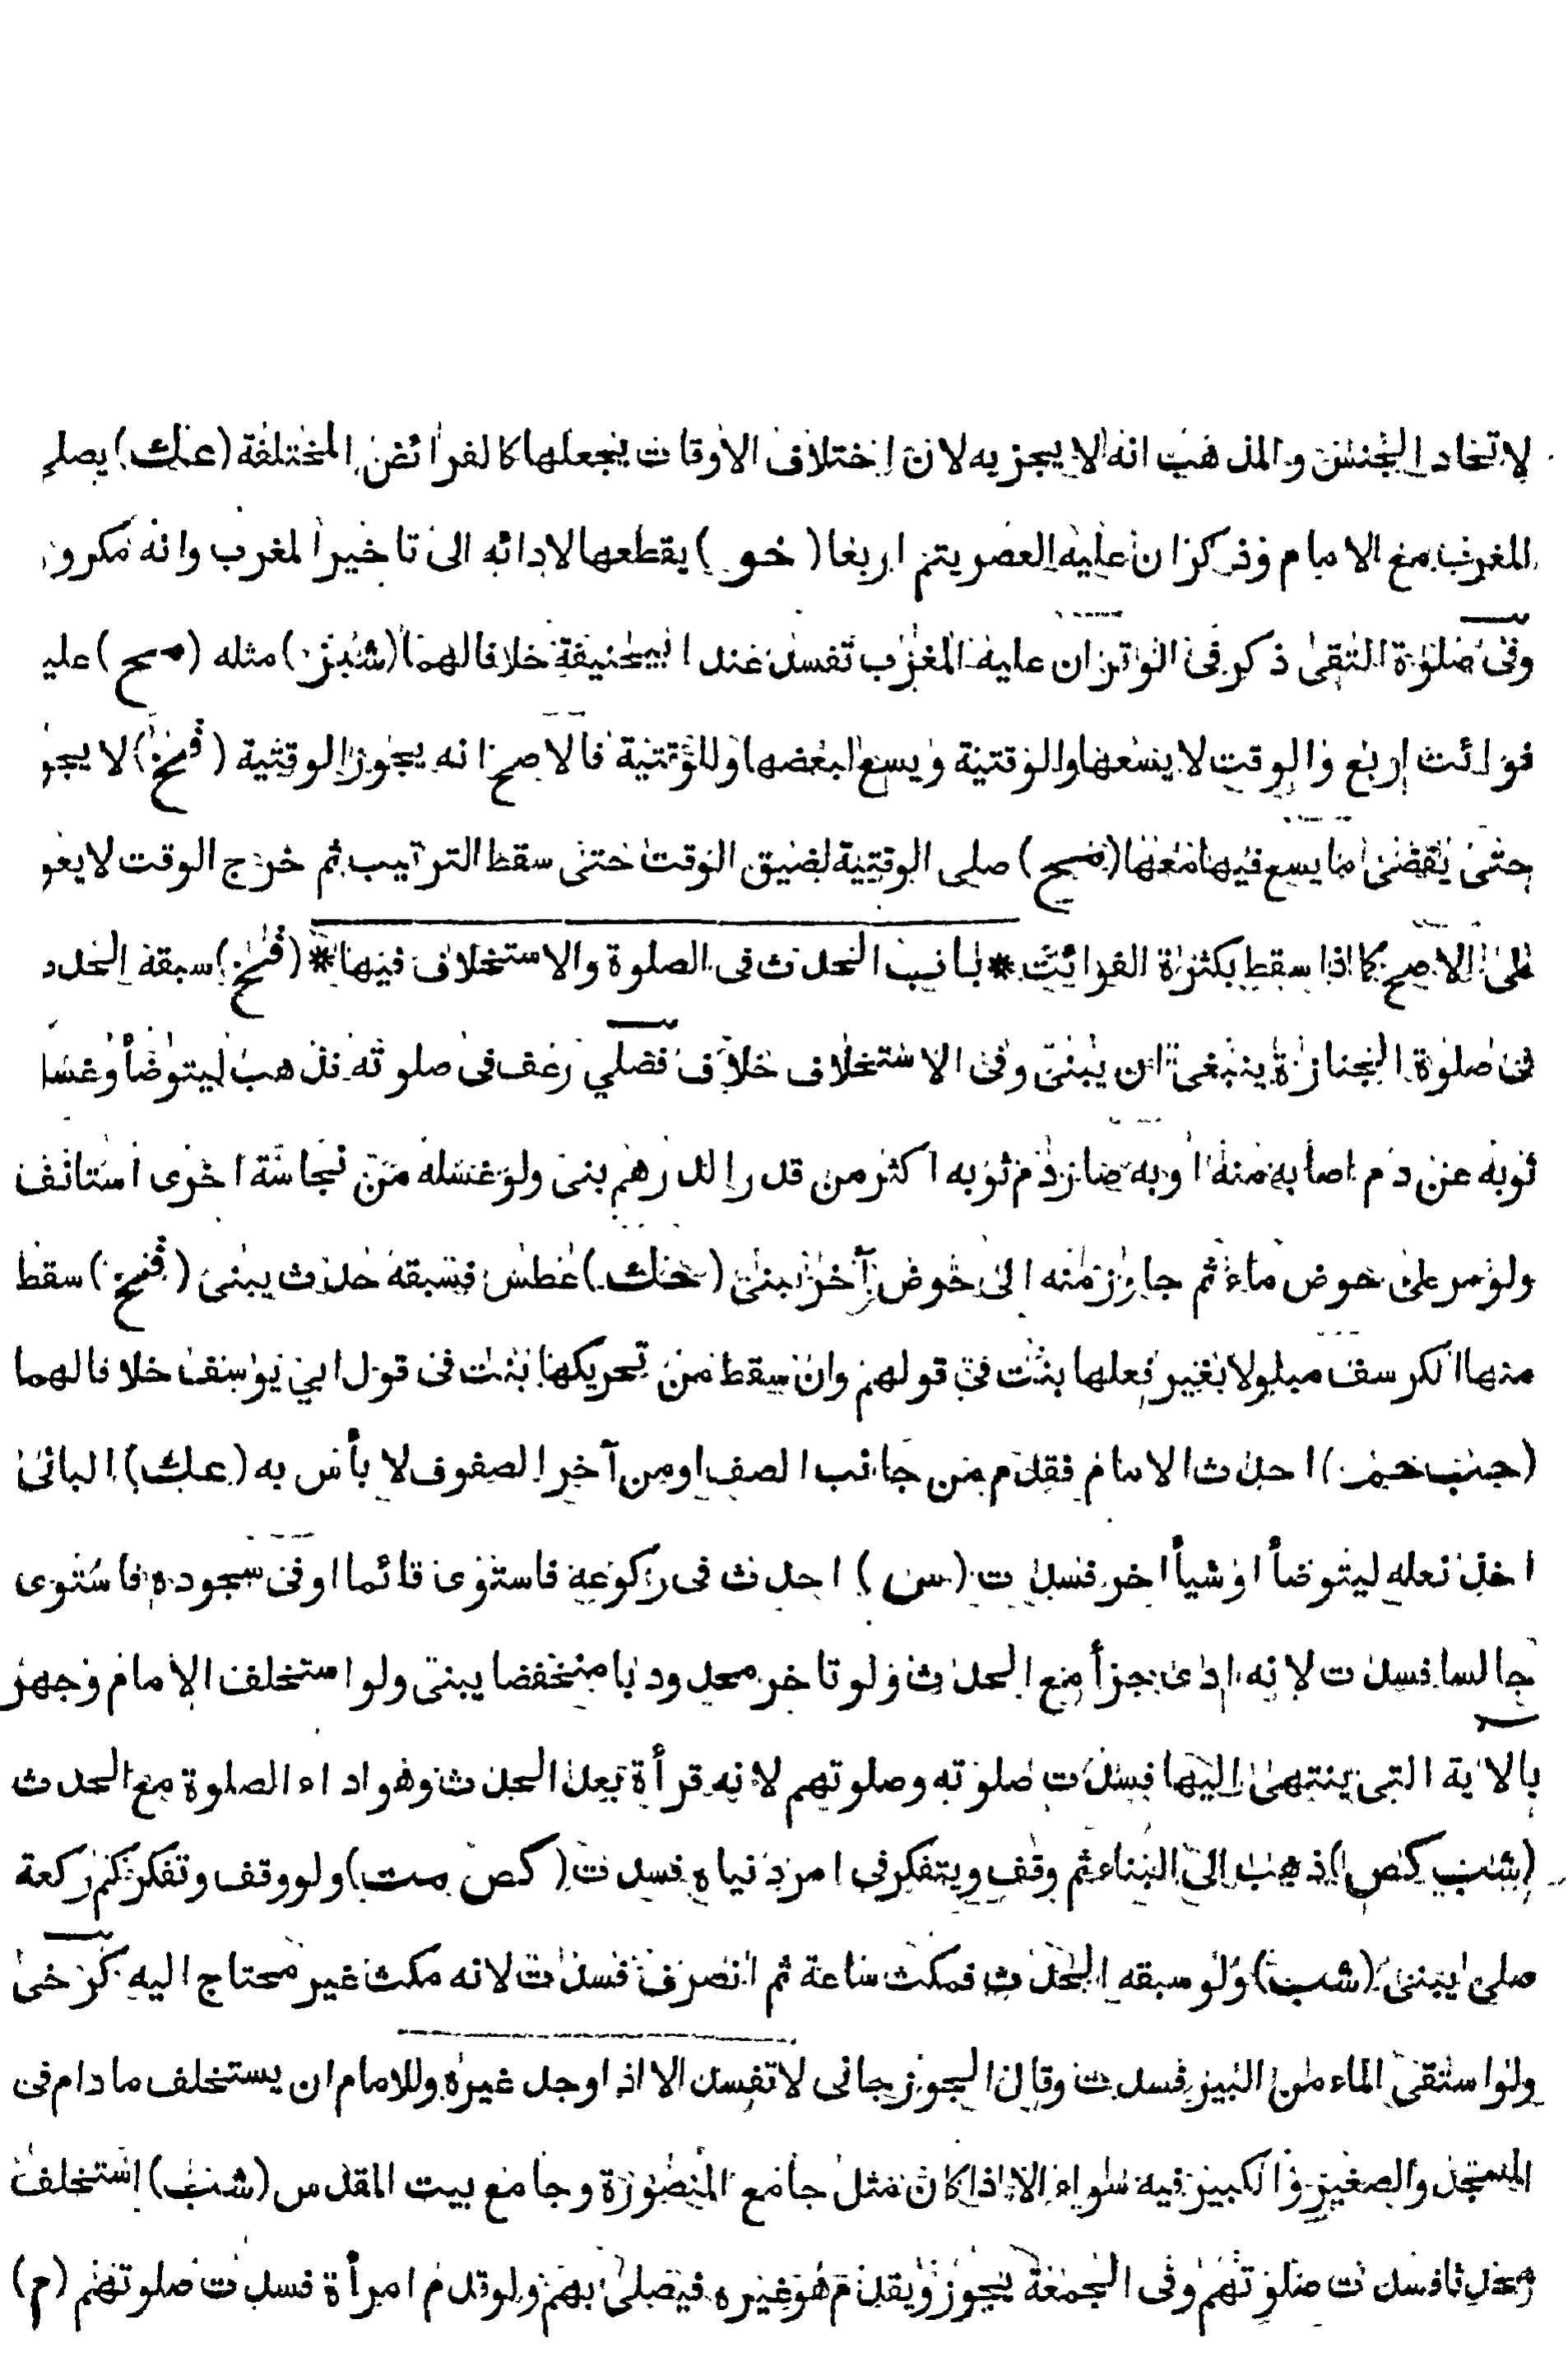 لاتحاد الجنس والمذهب انه لا يجزيه لان اختلاف الاوقات يجعلها كالفرائض المختلفة (عك) يصلي
المغرب مع الامام وذكر ان عليه العصر يتم اربعا (خو) يقطعها لادائه الى تاخير المغرب وانه مكرو
وفى صلوة التقى ذكر فى الوتر ان عليه المغرب تفسد عند ابيحنيفة خلافا لهما (شبز) مثله (مح) عليه
فوائت اربع والوقت لا يسعها والوقتية ويسع لبعضها وللوقتية فالاصح انه يجوز الوقتية (فخ) لا يجو
حتى يقضى ما يسع فيها معها (ضح) صلى الوقتية لضيق الوقت حتى سقط الترتيب ثم خرج الوقت لا يعو
على الاصح كما اذا سقط بكثرة الفوائت * باب الحدث فى الصلوة والاستخلاف فيها * (فخ) سبقه الحد
فى صلوة الجنازة ينبغى ان يبنى وفى الاستخلاف خلاف فصلي رعف فى صلوته فذهب ليتوضأ وغسل
ثوبه عن دم اصابه منه او به صار دم ثوبه اكثر من قدر الدرهم بنى ولو غسله من نجاسة اخرى استانف
ولو مر على حوض ماء ثم جاوز منه الى حوض آخر يبنى (خك) عطس فسبقه حدث يبنى (فخ) سقط
منها الكرسف مبلولا بغير فعلها بنت فى قولهم وان سقط من تحريكها بنت فى قول ابي يوسف خلافا لهما
(جنب خمر) احدث الامام فقدم من جانب الصف او من آخر الصفوف لا بأس به (عك) البانى
اخذ نعله ليتوضأ او شيأ اخر فسدت (سن) احدث فى ركوعه فاستوى قائما او فى سجوده فاستوى
جالسا فسدت لانه ادى جزأ مع الحدث ولو تاخر محدودبا منخفضا يبنى ولو استخلف الامام وجهر
بالاية التى ينتهى اليها فسدت صلوته وصلوتهم لانه قرأة بعد الحدث وهو اداء الصلوة مع الحدث
(شب كص) ذهب الى البناء ثم وقف ويتفكر فى امر دنياه فسدت (كص مت) ولو وقف وتفكر كم ركعة
صلى يبنى (شب) ولو سبقه الحدث فمكث ساعة ثم انصرف فسدت لانه مكث غير محتاج اليه كرخى
ولو استقى الماء من البير فسدت وقال الجوزجانى لا تفسد الا اذا وجد غيره وللامام ان يستخلف ما دام فى
المسجد والصغير والكبير فيه سواء الا اذا كان مثل جامع المنصورة وجامع بيت المقدس (شب) استخلف
محدثا فسدت صلوتهم وفى الجمعة يجوز ويقدم هو غيره فيصلى بهم ولو قدم امرأة فسدت صلوتهم (م)